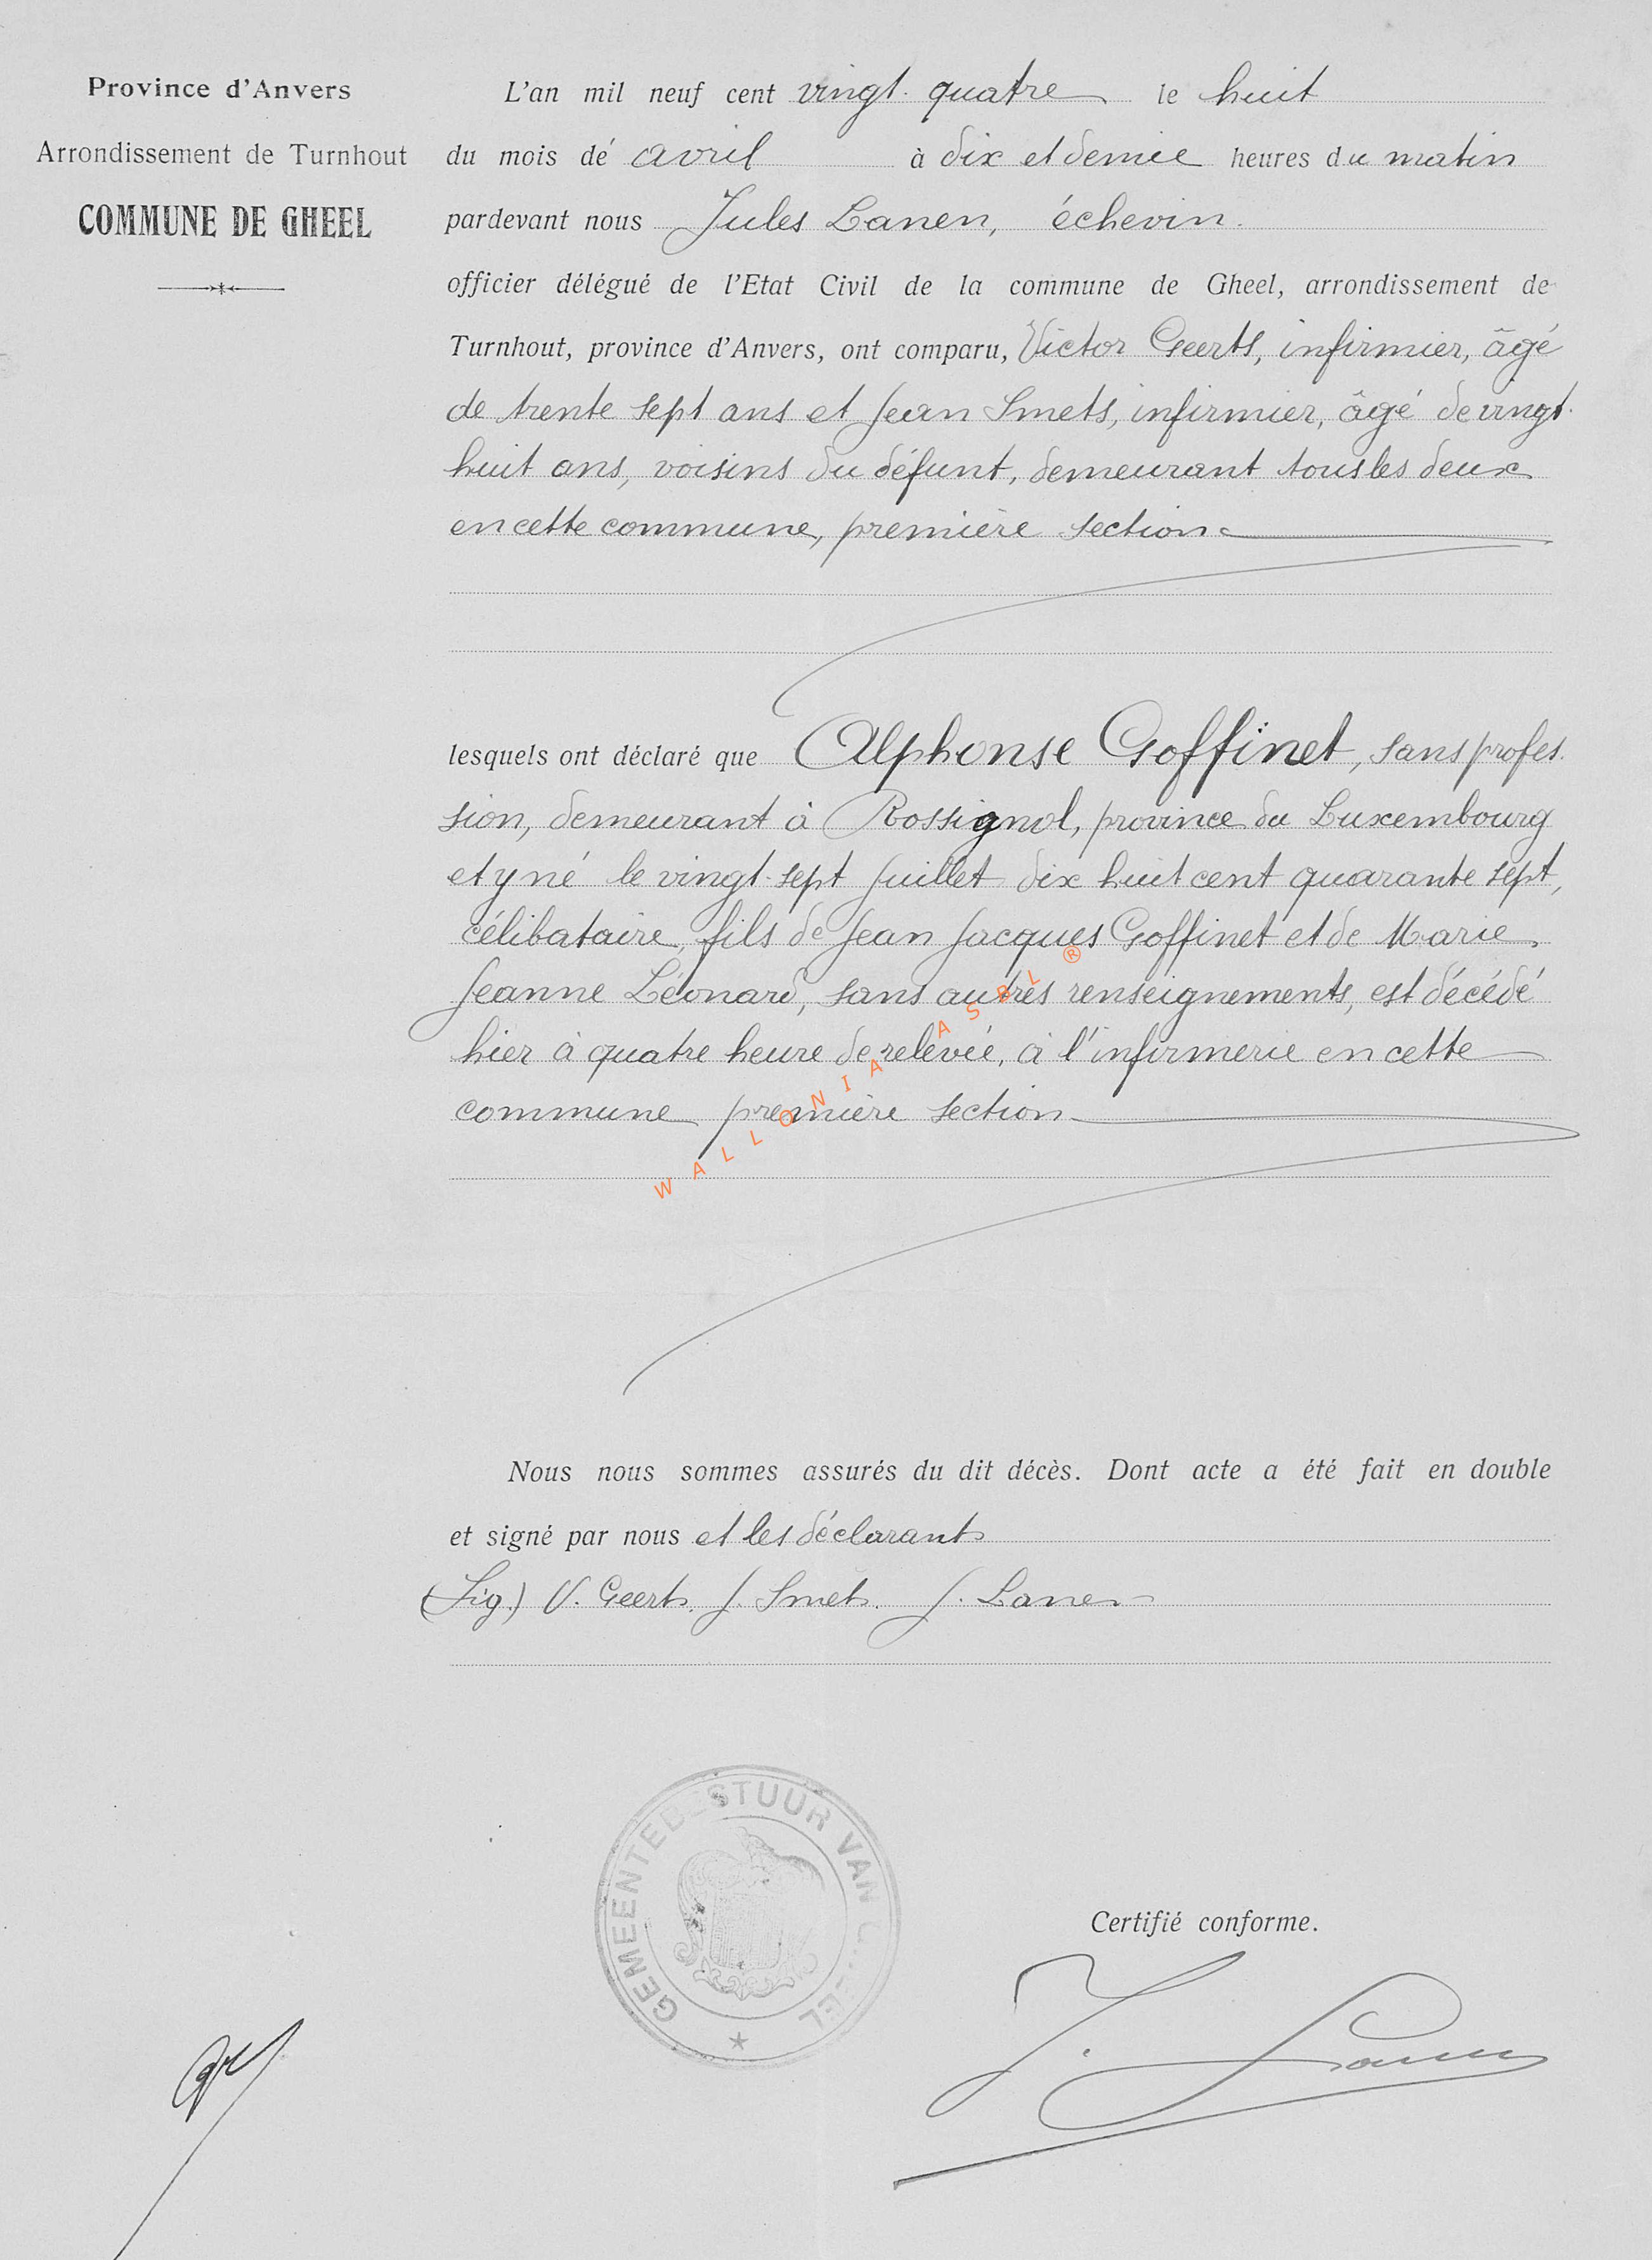 Province d'Anvers
Arrondissement de Turnhout
COMMUNE DE GHEEL
L'an mil neuf cent vingt-quatre le huit
du mois de avril à dix et demie heures du matin
pardevant nous Jules Lanen, échevin.
officier délégué de l'Etat Civil de la commune de Gheel, arrondissement de
Turnhout, province d'Anvers, ont comparu, Victor Geerts, infirmier, âgé
de trente sept ans et Jean Smets, infirmier, âgé de vingt-
huit ans, voisins du défunt, demeurant tous les deux
en cette commune, première section
lesquels ont déclaré que Alphonse Goffinet, sans profes-
sion, demeurant à Rossignol, province du Luxembourg
et y né le vingt-sept juillet dix huit cent quarante sept,
célibataire, fils de Jean Jacques Goffinet et de Marie
Jeanne Léonard, sans autres renseignements, est décédé
hier à quatre heure de relevée, à l'infirmerie en cette
commune première section
WALLONIA ASBL ®
Nous nous sommes assurés du dit décès. Dont acte a été fait en double
et signé par nous et les déclarants
(Sig.) V. Geerts. J. Smets. J. Lanen
GEMEENTEBESTUUR VAN GHEEL
Certifié conforme.
J. Lanen